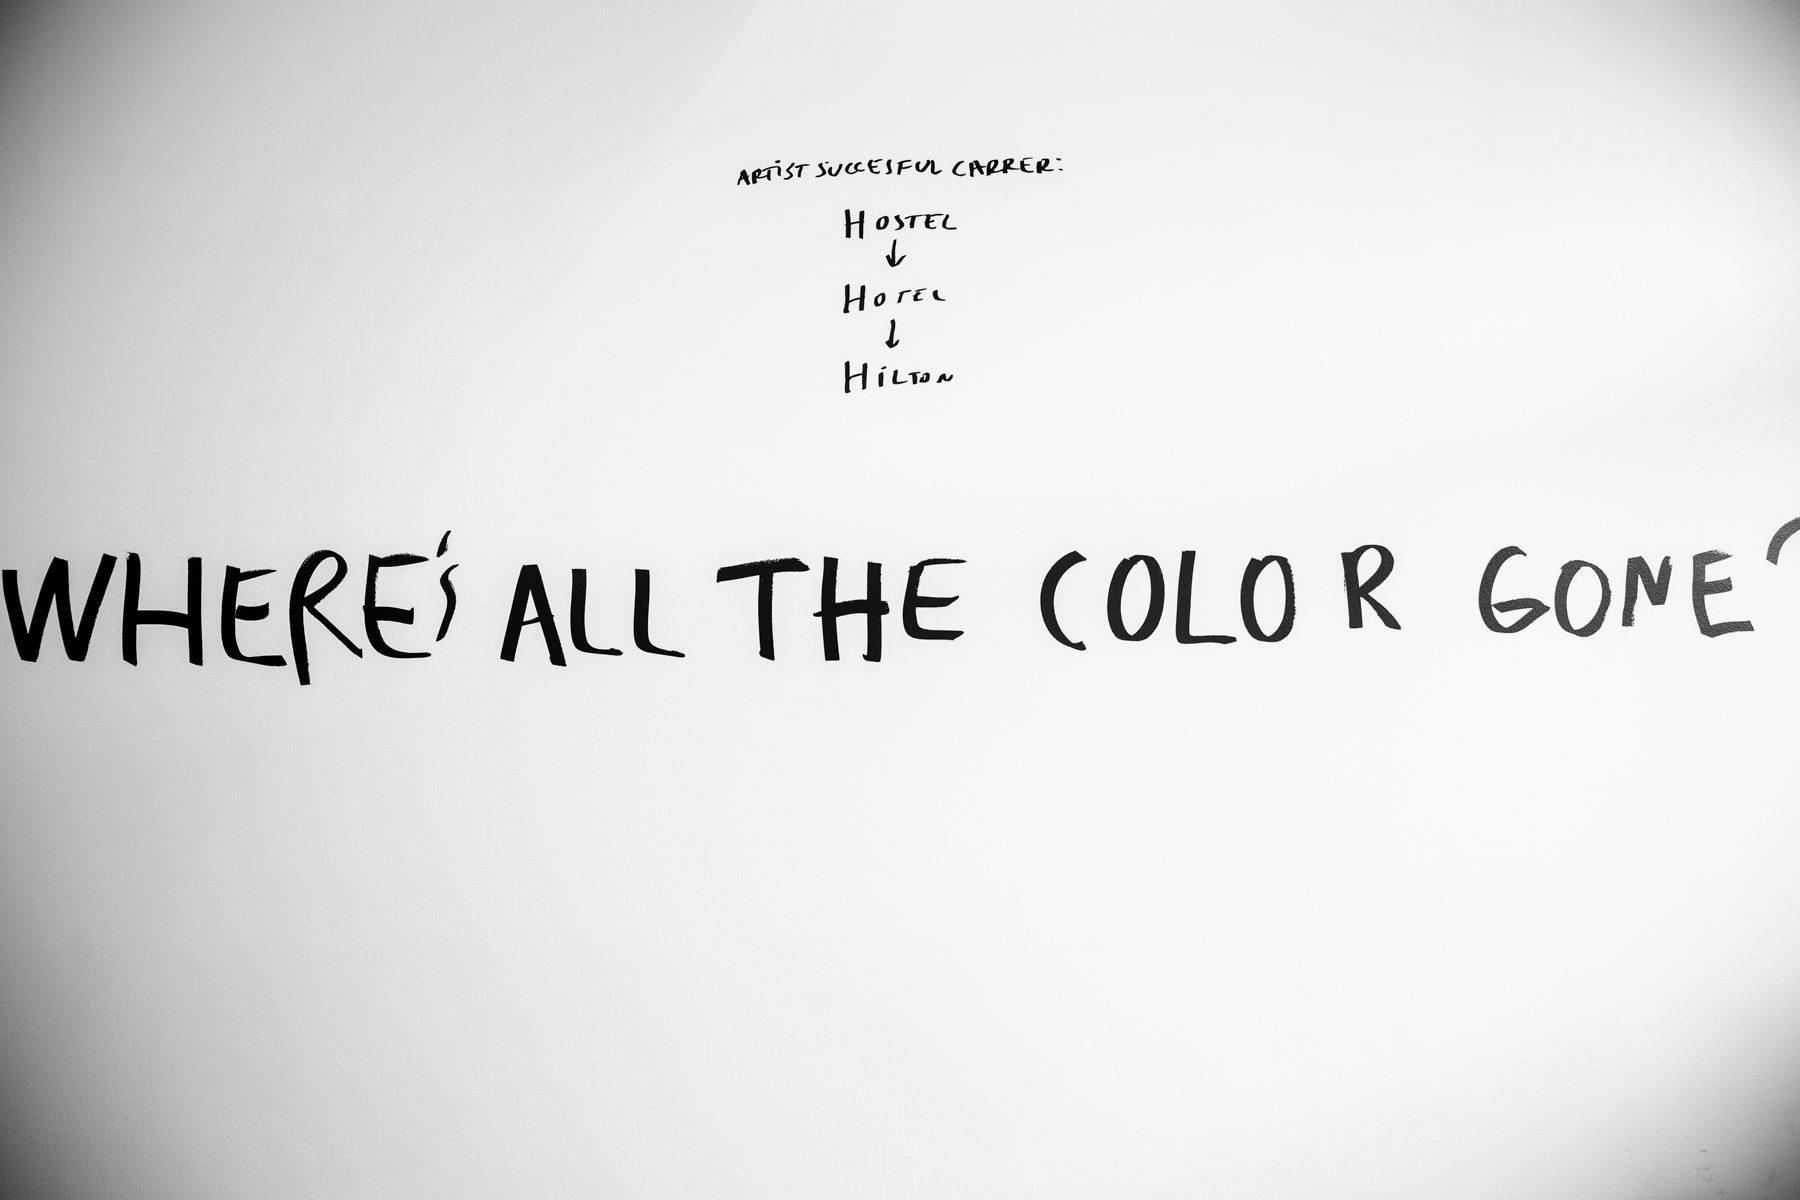 ARTIST SUCCESFUL CARRER:
HOSTEL
↓
HOTEL
↓
HILTON
WHERE'S ALL THE COLOR GONE?